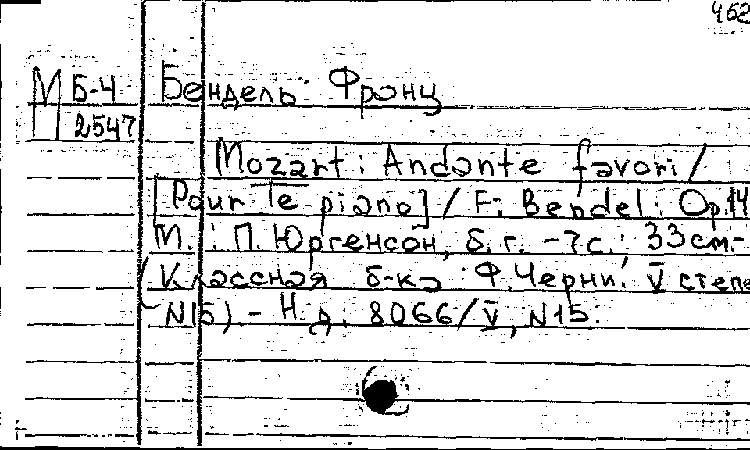 462
М Б-4 Бендель Франц
2547
Mozart: Andante favori /
[Pour le piano] / F. Bendel. Op.14
М.: П. Юргенсон, б.г. - 7с.; 33см.-
(Классная б-ка : Ф. Черни. V степе
N15). - Н.д. 8066/V, N15.